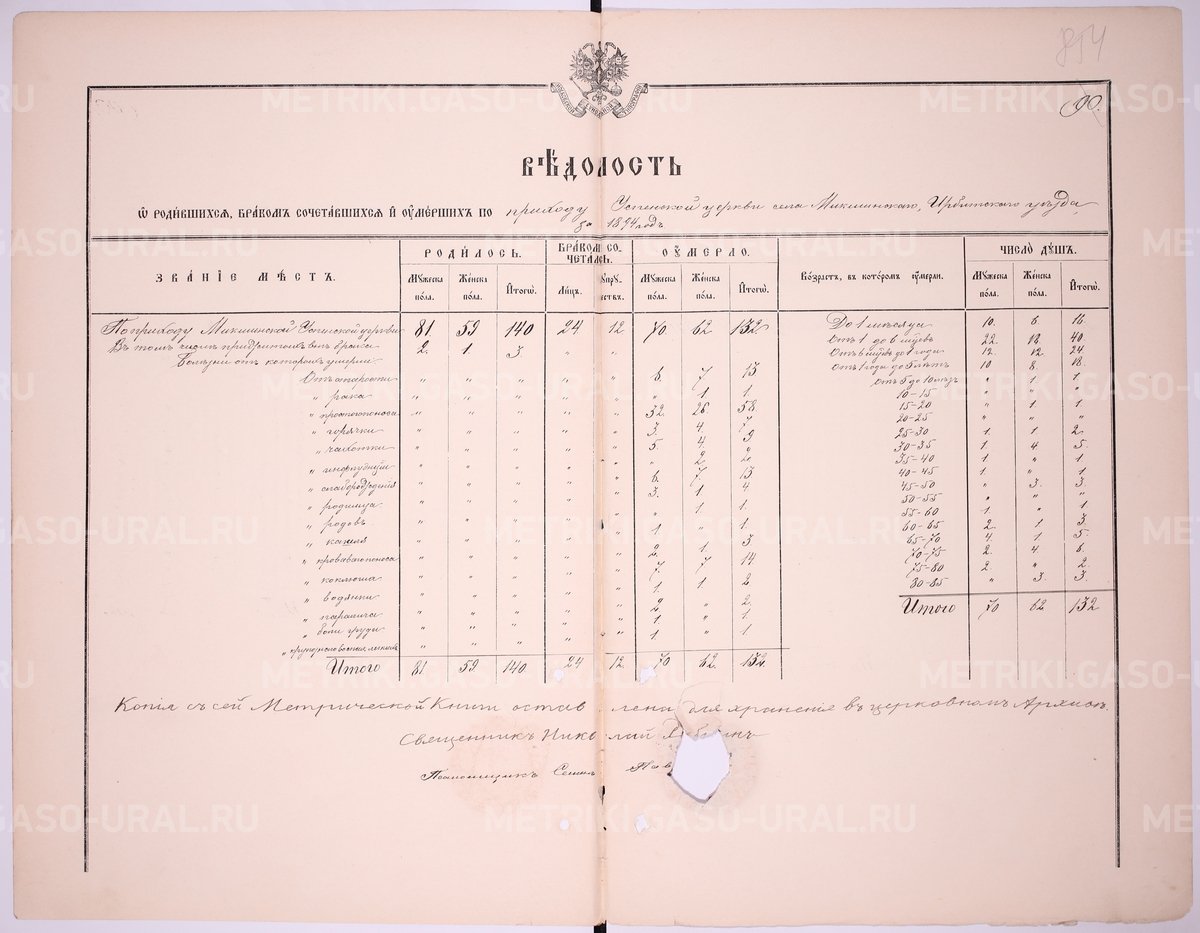 90.
ВѢДОМОСТЬ
Ѿ РОДИВШИХСЯ, БРАКОМЪ СОЧЕТАВШИХСЯ И ОУМЕРШИХЪ ПО приходу Успенской церкви села Микшинскаго, Ирбитскаго уѣзда,
за 1894 годъ
ЗВАНІЕ МѢСТЪ. РОДИЛОСЬ. БРАКОМ. СОЧЕТАЛСЬ. ОУМЕРЛО. Возрастъ, въ которомъ оумерли. ЧИСЛО ДУШЪ.
Мужеска пола. Женска пола. Итого. Лицъ. Мужеска пола. Женска пола. Итого. Мужеска пола. Женска пола. Итого.
По приходу Микшинской Успенской церкви 81. 59 140 24 12. 70 62 132 До 1 мѣсяца 10. 6. 16.
2. 1. 3. " " Отъ 1 до 6 мцевъ 22. 18 40
Болѣзни отъ которыхъ умерли Отъ 6 мцевъ до 1 года 12. 12 24.
Отъ старости " " " " " " 6. 7 13 Отъ 1 года до 5 лѣтъ 10 8. 18.
отъ 5 до 10 лѣтъ " 1 1.
" рака " " " " " " " 1 1 10-15 " " "
" простого поноса " " " " " " 32. 26. 58. 15-20 " 1 1.
" горячки " " " " " " 3. 4. 7 20-25 " " "
" чахотки " " " " " " 5. 4. 9 25-30 1 1 2.
" " " " " " " 2 2. 30-35 1 4 5.
" " " " " " 6. 7 13 35-40 1 " 1
" родимца " " " " " " 3. 1 4 40-45 1. " 1
" родовъ " " " " " " " 1 1. 45-50 " 3. 3
" кашля " " " " " " 1 " 1. 50-55 " " "
" кроваваго поноса " " " " " " 2. 1. 3 55-60 1. " 1
" коклюша " " " " " " 7. 7 14 60-65 2. 1 3.
" водянки " " " " " " 1 1 2. 65-70 4. 1 5.
" " " " " " 2. " 2. 70-75 2. 4 6.
" боли груди " " " " " " 1 " 1 75-80 2 " 2.
" " " " " " 1 " 1 80-85 " 3 3.
Итого 70 62. 132
Итого 81. 59. 140 24 12. 70 62. 132.
Копія съ сей Метрической Книги оставлена для храненіе въ церковномъ Архивѣ.
Священникъ Николай
Псаломщикъ
METRIKI.GASO-URAL.RU